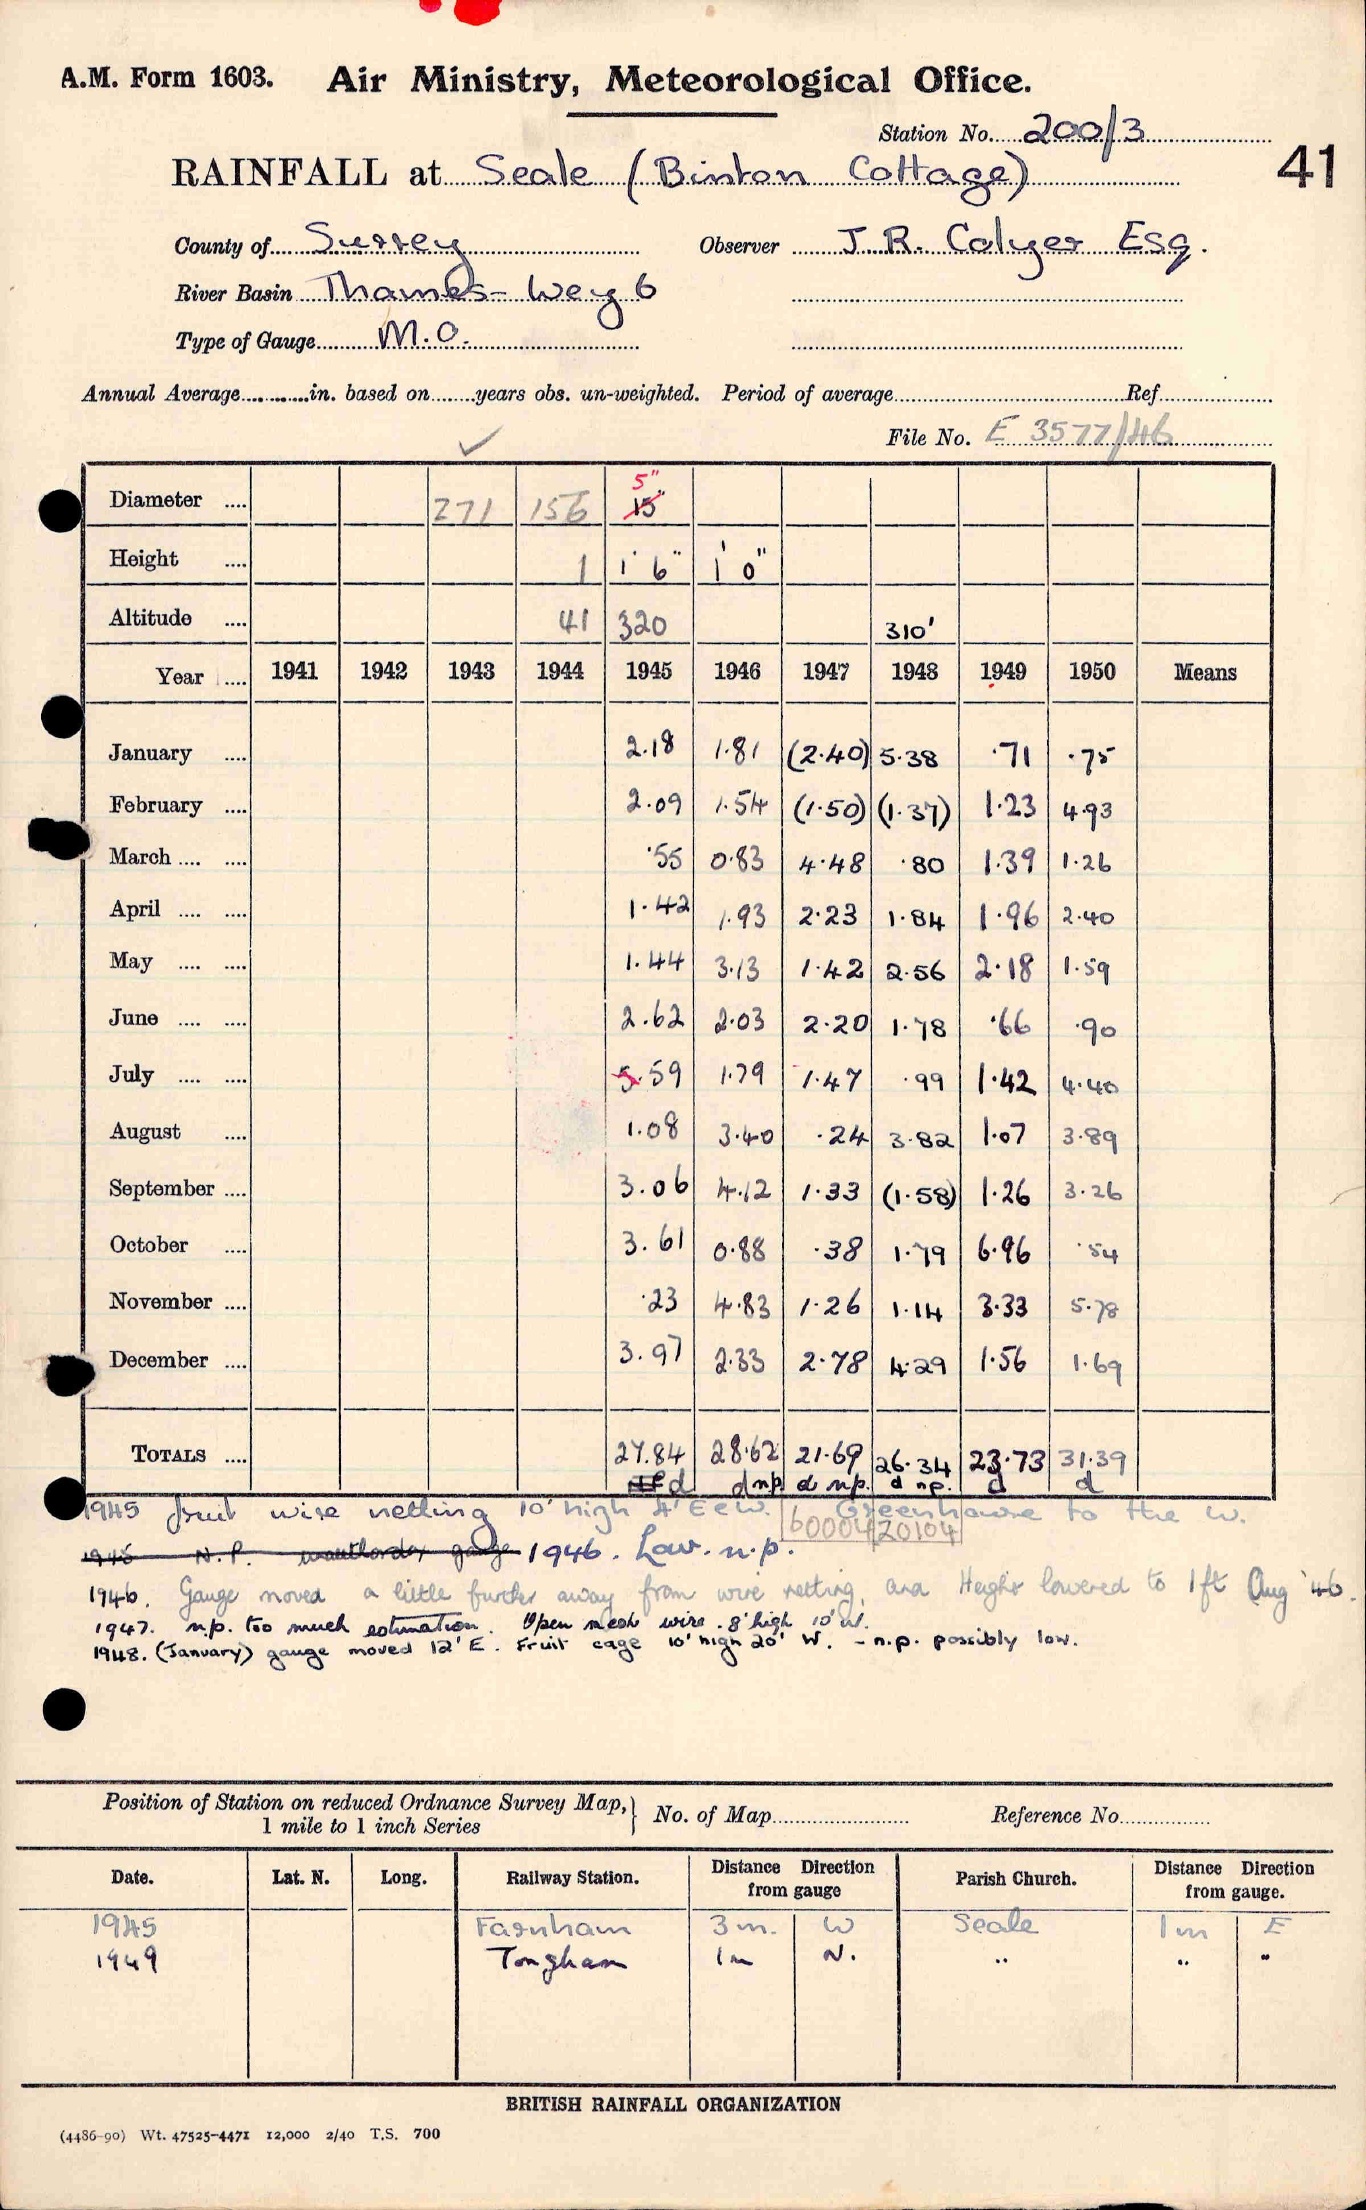 A.M. Form 1603. Air Ministry, Meteorological Office.
Station No. 200/3
41
RAINFALL at Seale (Binton Cottage)
County of Surrey Observer J. R. Colyer Esq.
River Basin Thames - Wey 6
Type of Gauge M.O.
Annual Average in. based on years obs. un-weighted. Period of average Ref
File No. E 3577/46
Diameter 271 156 5" 15"
Height 1 1' 6" 1' 0"
Altitude 41 320 310'
Year 1941 1942 1943 1944 1945 1946 1947 1948 1949 1950 Means
January 2.18 1.81 (2.40) 5.38 .71 .75
February 2.09 1.54 (1.50) (1.37) 1.23 4.93
March .55 0.83 4.48 .80 1.39 1.26
April 1.42 1.93 2.23 1.84 1.96 2.40
May 1.44 3.13 1.42 2.56 2.18 1.59
June 2.62 2.03 2.20 1.78 .66 .90
July 5.59 1.79 1.47 .99 1.42 4.40
August 1.08 3.40 .24 3.82 1.07 3.89
September 3.06 4.12 1.33 (1.58) 1.26 3.26
October 3.61 0.88 .38 1.79 6.96 .54
November .23 4.83 1.26 1.14 3.33 5.78
December 3.97 2.33 2.78 4.29 1.56 1.69
TOTALS 27.84 28.62 21.69 26.34 23.73 31.39
d d np d np. d np. d d
1945 fruit wire netting 10' high 4' E & W. Greenhouse to the W.
60004 20104
1945 N.P. gauge 1946. Low. n.p.
1946. Gauge moved a little further away from wire netting, and Height lowered to 1 ft Aug '46.
1947. n.p. too much estimation. Open mesh wire 8' high 10' W.
1948. (January) gauge moved 12' E. Fruit cage 10' high 20' W. - n.p. possibly low.
Position of Station on reduced Ordnance Survey Map, 1 mile to 1 inch Series } No. of Map Reference No
Date. Lat. N. Long. Railway Station. Distance Direction from gauge Parish Church. Distance Direction from gauge.
1945 Farnham 3 m. W Seale 1 m E
1949 Tongham 1 m N. " " "
BRITISH RAINFALL ORGANIZATION
(4486-90) Wt. 47525-4471 12,000 2/40 T.S. 700